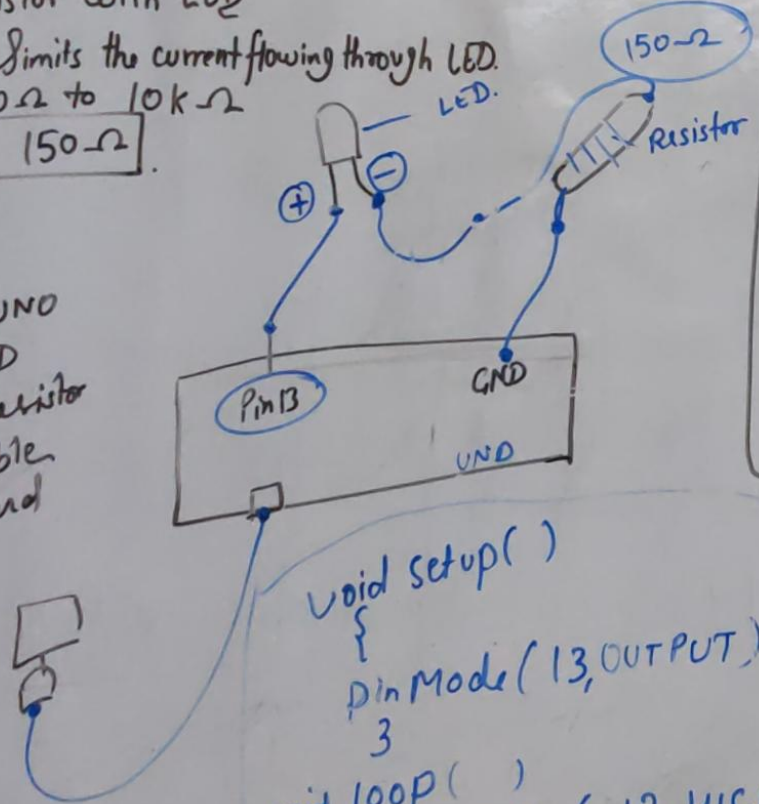 limits the current flowing through LED.
Ω to 10k Ω
150Ω
LED.
150Ω
Resistor
+
−
UNO
Pin 13
GND
UNO
void setup( )
{
pinMode( 13, OUTPUT )
}
loop( )